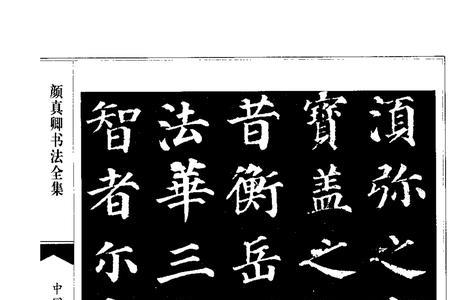 須弥之
寶盖之
昔衡岳
法華三
智者尒
颜真卿书法全集
中